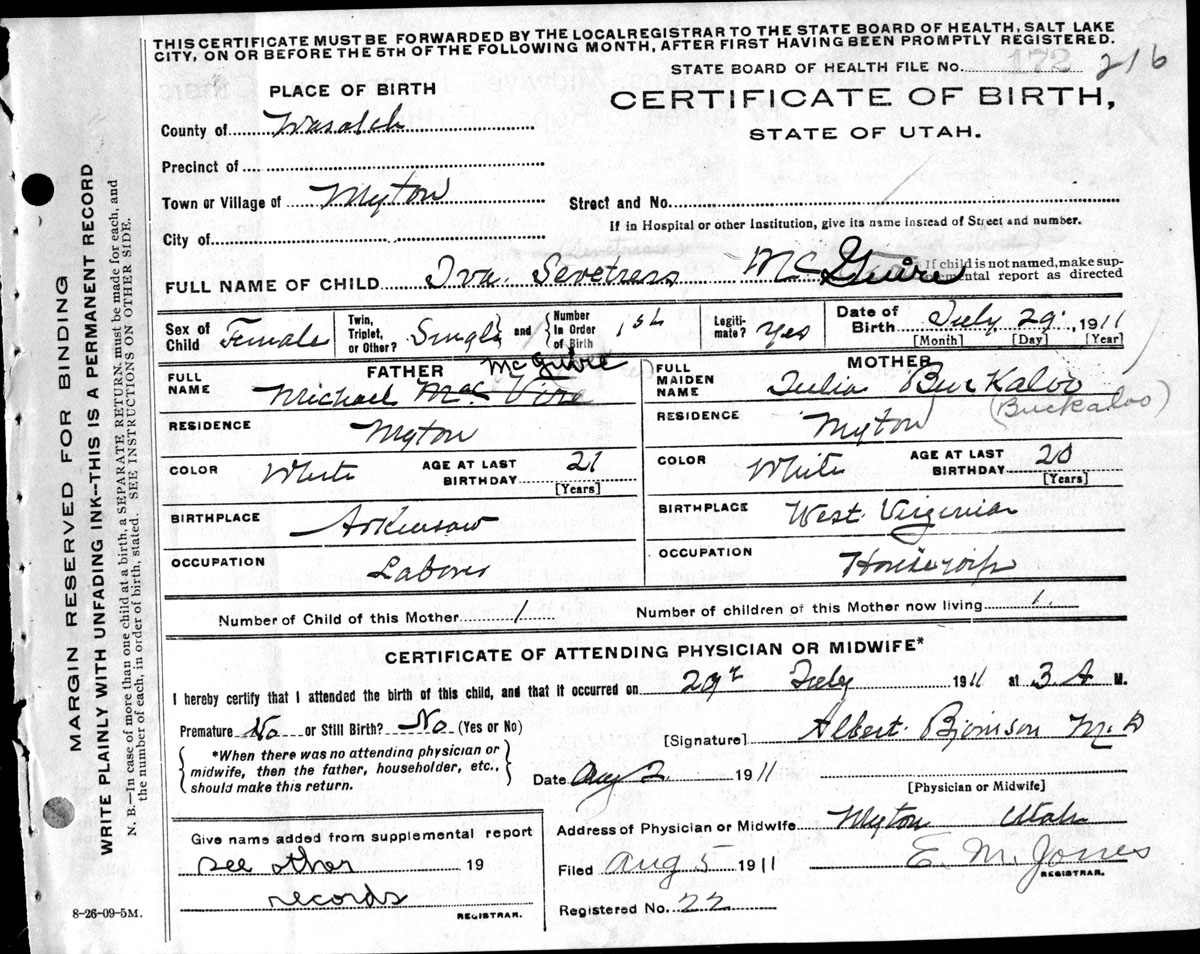 THIS CERTIFICATE MUST BE FORWARDED BY THE LOCALREGISTRAR TO THE STATE BOARD OF HEALTH, SALT LAKE
CITY, ON OR BEFORE THE 5TH OF THE FOLLOWING MONTH, AFTER FIRST HAVING BEEN PROMPTLY REGISTERED.
STATE BOARD OF HEALTH FILE NO. 172 216
PLACE OF BIRTH
CERTIFICATE OF BIRTH,
STATE OF UTAH.
County of Wasatch
Precinct of
Town or Village of Myton
Street and No.
If in Hospital or other Institution, give its name instead of Street and number.
City of
FULL NAME OF CHILD Iva Sevetress McGuire
If child is not named, make sup-
plemental report as directed
Sex of Child Female
Twin, Triplet, or Other? Single and Number In Order of Birth 1st
Legiti-mate? Yes
Date of Birth July 29, 1911
[Month] [Day] [Year]
FATHER
MOTHER
McGuire
FULL NAME Michael Mac Vire
FULL MAIDEN NAME Julia Buckaloo
(Buckaloo)
RESIDENCE Myton
RESIDENCE Myton
COLOR White AGE AT LAST BIRTHDAY 21 [Years]
COLOR White AGE AT LAST BIRTHDAY 20 [Years]
BIRTHPLACE Arkensaw
BIRTHPLACE West Virginia
OCCUPATION Labores
OCCUPATION Housewife
Number of Child of this Mother 1
Number of children of this Mother now living 1.
CERTIFICATE OF ATTENDING PHYSICIAN OR MIDWIFE*
I hereby certify that I attended the birth of this child, and that it occurred on 29 July 1911 at 3 A M.
Premature No or Still Birth? No (Yes or No)
[Signature] Albert Bjornson M.D
*When there was no attending physician or
midwife, then the father, householder, etc.,
should make this return.
Date Aug 2 1911
[Physician or Midwife]
Give name added from supplemental report
see other 19
records
REGISTRAR.
Address of Physician or Midwife Myton Utah
Filed Aug 5 1911 E. M. Jones
REGISTRAR.
Registered No. 22
8-26-09-5M.
MARGIN RESERVED FOR BINDING
WRITE PLAINLY WITH UNFADING INK--THIS IS A PERMANENT RECORD
N. B.—In case of more than one child at a birth, a SEPARATE RETURN must be made for each, and
the number of each, in order of birth, stated. SEE INSTRUCTIONS ON OTHER SIDE.